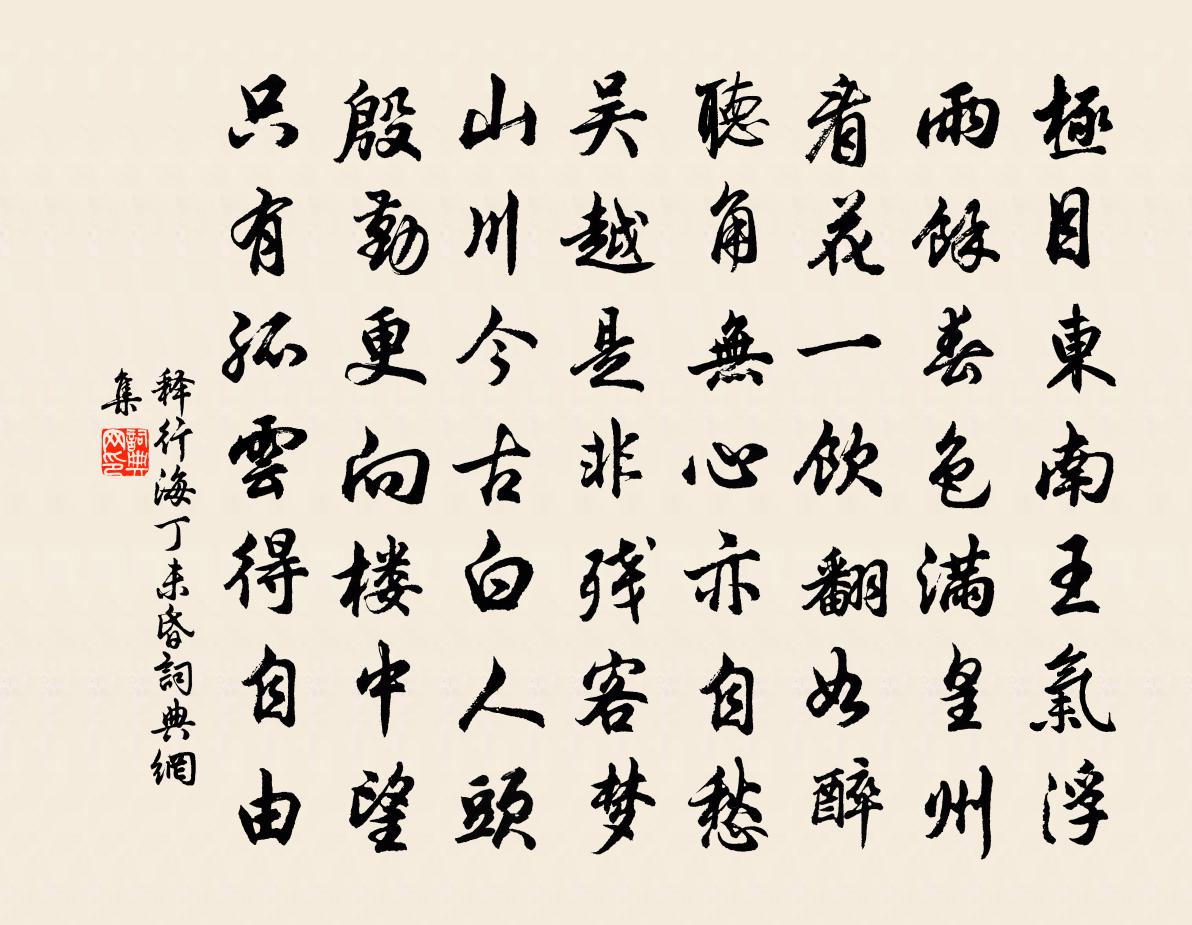 極目東南王氣浮
雨餘春色滿皇州
看花一飲翻如醉
聽角無心亦自愁
吴越是非残客梦
山川今古白人頭
殷勤更向楼中望
只有孤雲得自由
释行海丁未昏詞典網
集
詞典网印